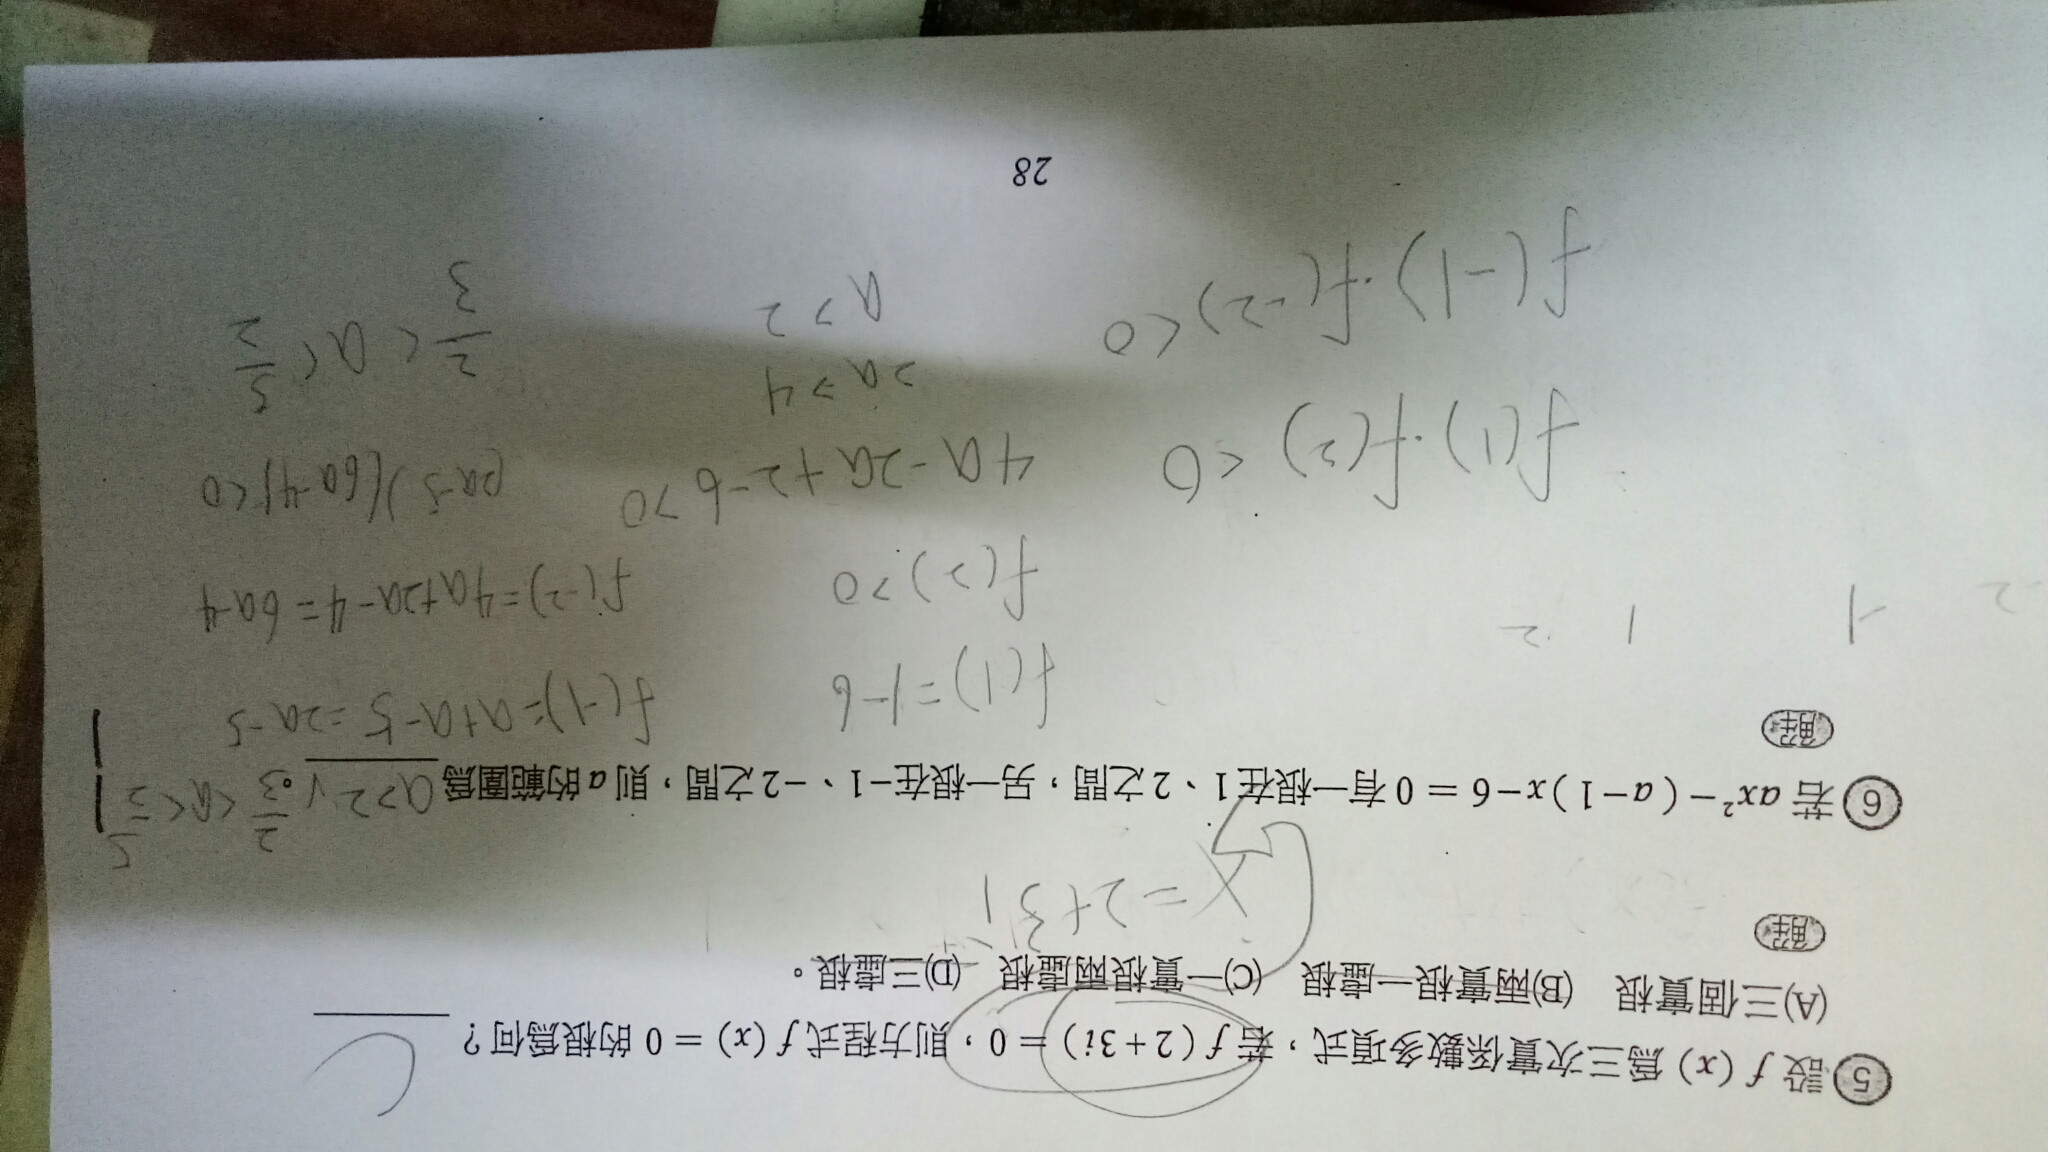 ⑤ 設 f (x) 為三次實係數多項式，若 f (2+3i) = 0，則方程式 f (x) = 0 的根為何？ C
(A)三個實根 (B)兩實根一虛根 (C)一實根兩虛根 (D)三虛根。
解
x = 2+3i
⑥ 若 ax²－(a－1)x－6 = 0 有一根在1、2之間，另一根在－1、－2之間，則 a 的範圍為 a>2 √ 2/3 < a < 5/2 。
解
f(1)=1-6
f(-1)=a+a-5=2a-5
-2 -1 1 2
f(2)>0
f(-2)=4a+2a-4=6a-4
f(1)·f(2)<0
4a-2a+2-6>0
(2a-5)(6a-4)<0
2a>4
f(-1)·f(-2)<0
a>2
2/3 < a < 5/2
28